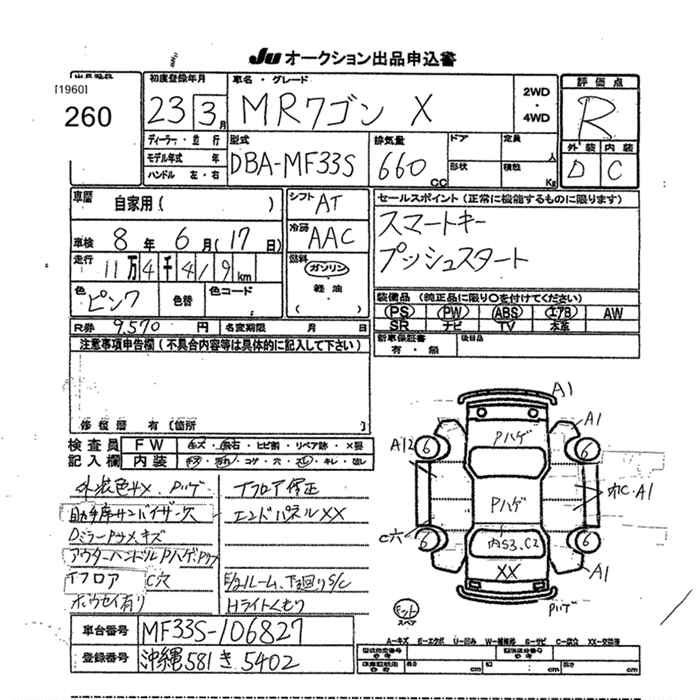 Ju オークション出品申込書
[1960]
260
初度登録年月
23 3月
車名・グレード
MRワゴン X
2WD
・
4WD
評価点
R
外装 内装
D C
ディーラー・並行
モデル年式 年
ハンドル 左・右
型式
DBA-MF33S
排気量
660 CC
ドア
形状
定員
人
積載
Kg
車歴
自家用( )
シフト
AT
セールスポイント(正常に機能するものに限ります)
スマートキー
プッシュスタート
車検
8年 6月(17日)
冷房
AAC
走行
11万4千419km
燃料
ガソリン
・
軽油
( )
色
ピンク
色替
色コード
装備品(純正品に限り○を付けてください)
PS PW ABS エアB AW
SR ナビ TV 本革
R券 9,570円
名変期限 月 日
新車保証書
有・無
後日品
注意事項申告欄(不具合内容等は具体的に記入して下さい)
修復歴 有〔箇所 〕
検査員
記入欄
FW キズ・飛石・ヒビ割・リペア跡・X要
内装 キズ・汚れ・コゲ・穴・キレ
外装色サメ、Pハゲ
助手席サンバイザー欠
Dミラーサメ、キズ
アウターハンドルPハゲ、
Tフロア C穴
ホウセイ有り
Tフロア修正
エンドパネルXX
E/Gルーム、下廻りS/C
Hライトくもり
A1
Pハゲ
A1
A12
6
6
Pハゲ
A1
C穴
6
6
内S3、C2
XX
A1
Pハゲ
スペア
車台番号
MF33S-106827
登録番号
沖縄581き5402
A-キズ E-エクボ U-凹み W-補修跡 S-サビ C-腐穴 XX-交換等
cm cm cm